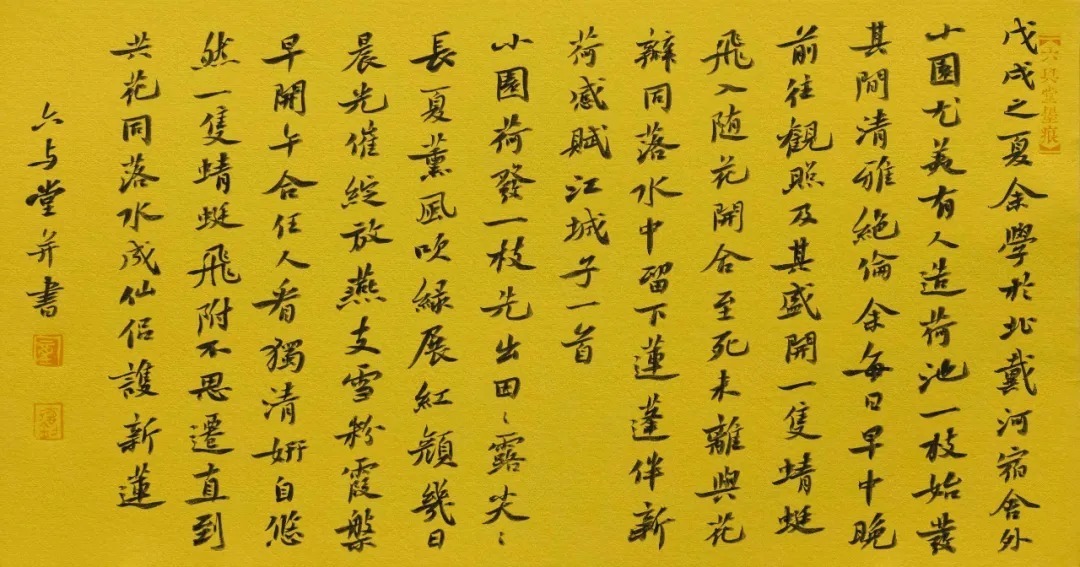 【六與堂墨痕】
戊戌之夏余學於北戴河宿舍外
小園尤美有人造荷池一枝始發
其間清雅絕倫余每日早中晚
前往觀照及其盛開一隻蜻蜓
飛入随花開合至死未離與花
瓣同落水中留下蓮蓬伴新
荷感賦江城子一首
小園荷發一枝先出田〻露尖〻
長夏薰風吹緑展紅顔幾日
晨光催綻放燕支雪粉霞槃
早開午合任人看獨清妍自悠
然一隻蜻蜓飛附不思遷直到
共花同落水成仙侣護新蓮
六与堂并書